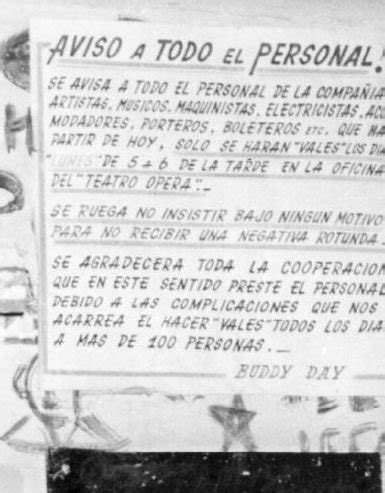 AVISO A TODO EL PERSONAL!
SE AVISA A TODO EL PERSONAL DE LA COMPAÑIA
ARTISTAS, MUSICOS, MAQUINISTAS, ELECTRICISTAS, ACO
MODADORES, PORTEROS, BOLETEROS ETC. QUE HA
PARTIR DE HOY, SOLO SE HARAN "VALES" LOS DIA
"LUNES" DE 5 A 6 DE LA TARDE EN LA OFICINA
DEL "TEATRO OPERA".-
SE RUEGA NO INSISTIR BAJO NINGUN MOTIVO
PARA NO RECIBIR UNA NEGATIVA ROTUNDA.
SE AGRADECERA TODA LA COOPERACION
QUE EN ESTE SENTIDO PRESTE EL PERSONAL
DEBIDO A LAS COMPLICACIONES QUE NOS
ACARREA EL HACER "VALES" TODOS LOS DIA
A MAS DE 100 PERSONAS.-
BUDDY DAY